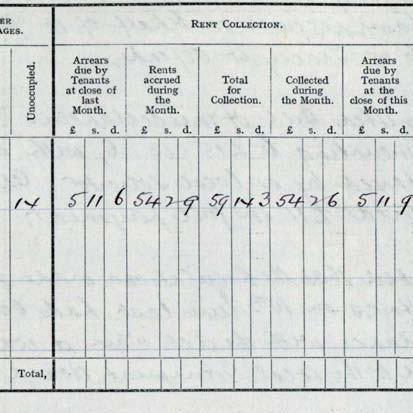 ER
AGES.
RENT COLLECTION.
Unoccupied.
Arrears
due by
Tenants
at close of
last
Month.
Rents
accrued
during
the
Month.
Total
for
Collection.
Collected
during
the Month.
Arrears
due by
Tenants
at the
close of this
Month.
£ s. d. £ s. d. £ s. d. £ s. d. £ s. d.
14 5 11 6 54 2 9 59 14 3 54 2 6 5 11 9
Total,